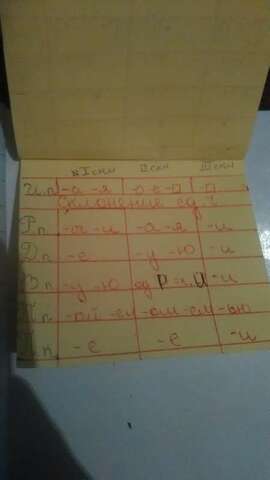 I скл II скл III скл
И.п. -а -я -о -е -□ -□
Склонение ед.ч.
Р п. -ы -и -а -я -и
Д п. -е -у -ю -и
В п. -у -ю Р И -и
-ой -ей -ом -ем -ью
П п. -е -е -и